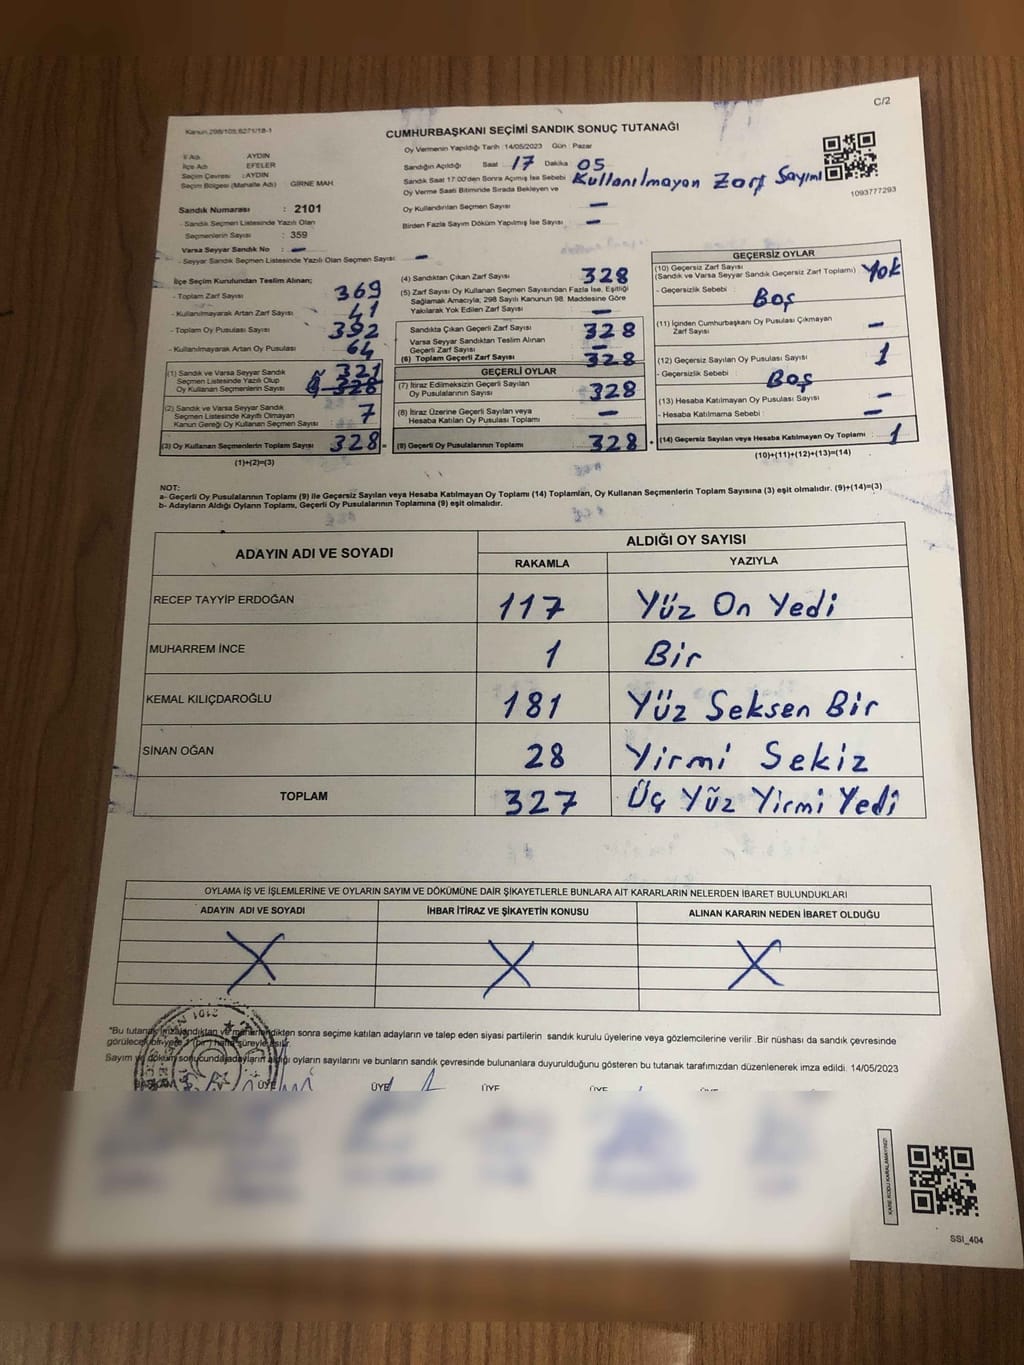 C/2
Kanun,298/105;6271/18-1
CUMHURBAŞKANI SEÇİMİ SANDIK SONUÇ TUTANAĞI
Oy Vermenin Yapıldığı Tarih : 14/05/2023 Gün : Pazar
İl Adı : AYDIN
İlçe Adı : EFELER
Seçim Çevresi : AYDIN
Seçim Bölgesi (Mahalle Adı) : GİRNE MAH.
Sandığın Açıldığı Saat 17 Dakika 05
Sandık Saat 17:00'den Sonra Açılmış İse Sebebi Kullanılmayan Zarf Sayımı
Oy Verme Saati Bitiminde Sırada Bekleyen ve
Oy Kullandırılan Seçmen Sayısı : —
Birden Fazla Sayım Döküm Yapılmış İse Sayısı : —
1093777293
Sandık Numarası : 2101
- Sandık Seçmen Listesinde Yazılı Olan
Seçmenlerin Sayısı : 359
Varsa Seyyar Sandık No : —
- Seyyar Sandık Seçmen Listesinde Yazılı Olan Seçmen Sayısı : —
İlçe Seçim Kurulundan Teslim Alınan;
- Toplam Zarf Sayısı : 369
- Kullanılmayarak Artan Zarf Sayısı : 41
- Toplam Oy Pusulası Sayısı : 392
- Kullanılmayarak Artan Oy Pusulası : 64
(1) Sandık ve Varsa Seyyar Sandık
Seçmen Listesinde Yazılı Olup
Oy Kullanan Seçmenlerin Sayısı : 321 328
(2) Sandık ve Varsa Seyyar Sandık
Seçmen Listesinde Kayıtlı Olmayan
Kanun Gereği Oy Kullanan Seçmen Sayısı : 7
(3) Oy Kullanan Seçmenlerin Toplam Sayısı : 328 =
(1)+(2)=(3)
(4) Sandıktan Çıkan Zarf Sayısı : 328
(5) Zarf Sayısı Oy Kullanan Seçmen Sayısından Fazla İse, Eşitliği
Sağlamak Amacıyla, 298 Sayılı Kanunun 98. Maddesine Göre
Yakılarak Yok Edilen Zarf Sayısı : —
Sandıkta Çıkan Geçerli Zarf Sayısı : 328
Varsa Seyyar Sandıktan Teslim Alınan
Geçerli Zarf Sayısı : —
(6) Toplam Geçerli Zarf Sayısı : 328
GEÇERLİ OYLAR
(7) İtiraz Edilmeksizin Geçerli Sayılan
Oy Pusulalarının Sayısı : 328
(8) İtiraz Üzerine Geçerli Sayılan veya
Hesaba Katılan Oy Pusulası Toplamı : —
(9) Geçerli Oy Pusulalarının Toplamı : 328 +
GEÇERSİZ OYLAR
(10) Geçersiz Zarf Sayısı
(Sandık ve Varsa Seyyar Sandık Geçersiz Zarf Toplamı) : Yok
- Geçersizlik Sebebi : Boş
(11) İçinden Cumhurbaşkanı Oy Pusulası Çıkmayan
Zarf Sayısı : —
(12) Geçersiz Sayılan Oy Pusulası Sayısı : 1
- Geçersizlik Sebebi : Boş
(13) Hesaba Katılmayan Oy Pusulası Sayısı : —
- Hesaba Katılmama Sebebi : —
(14) Geçersiz Sayılan veya Hesaba Katılmayan Oy Toplamı : 1
(10)+(11)+(12)+(13)=(14)
NOT:
a- Geçerli Oy Pusulalarının Toplamı (9) ile Geçersiz Sayılan veya Hesaba Katılmayan Oy Toplamı (14) Toplamları, Oy Kullanan Seçmenlerin Toplam Sayısına (3) eşit olmalıdır. (9)+(14)=(3)
b- Adayların Aldığı Oyların Toplamı, Geçerli Oy Pusulalarının Toplamına (9) eşit olmalıdır.
ADAYIN ADI VE SOYADI
ALDIĞI OY SAYISI
RAKAMLA YAZIYLA
RECEP TAYYİP ERDOĞAN 117 Yüz On Yedi
MUHARREM İNCE 1 Bir
KEMAL KILIÇDAROĞLU 181 Yüz Seksen Bir
SİNAN OĞAN 28 Yirmi Sekiz
TOPLAM 327 Üç Yüz Yirmi Yedi
OYLAMA İŞ VE İŞLEMLERİNE VE OYLARIN SAYIM VE DÖKÜMÜNE DAİR ŞİKAYETLERLE BUNLARA AİT KARARLARIN NELERDEN İBARET BULUNDUKLARI
ADAYIN ADI VE SOYADI İHBAR İTİRAZ VE ŞİKAYETİN KONUSU ALINAN KARARIN NEDEN İBARET OLDUĞU
"Bu tutanak imzalandıktan ve mühürlendikten sonra seçime katılan adayların ve talep eden siyasi partilerin sandık kurulu üyelerine veya gözlemcilerine verilir. Bir nüshası da sandık çevresinde
görülecek bir yere 1 (bir) hafta süreyle asılır.
Sayım ve döküm sonucunda adayların aldığı oyların sayılarını ve bunların sandık çevresinde bulunanlara duyurulduğunu gösteren bu tutanak tarafımızdan düzenlenerek imza edildi. 14/05/2023
BAŞKAN ÜYE ÜYE ÜYE ÜYE
2101
KARE KODU KARALAMAYINIZ!
SSI_404